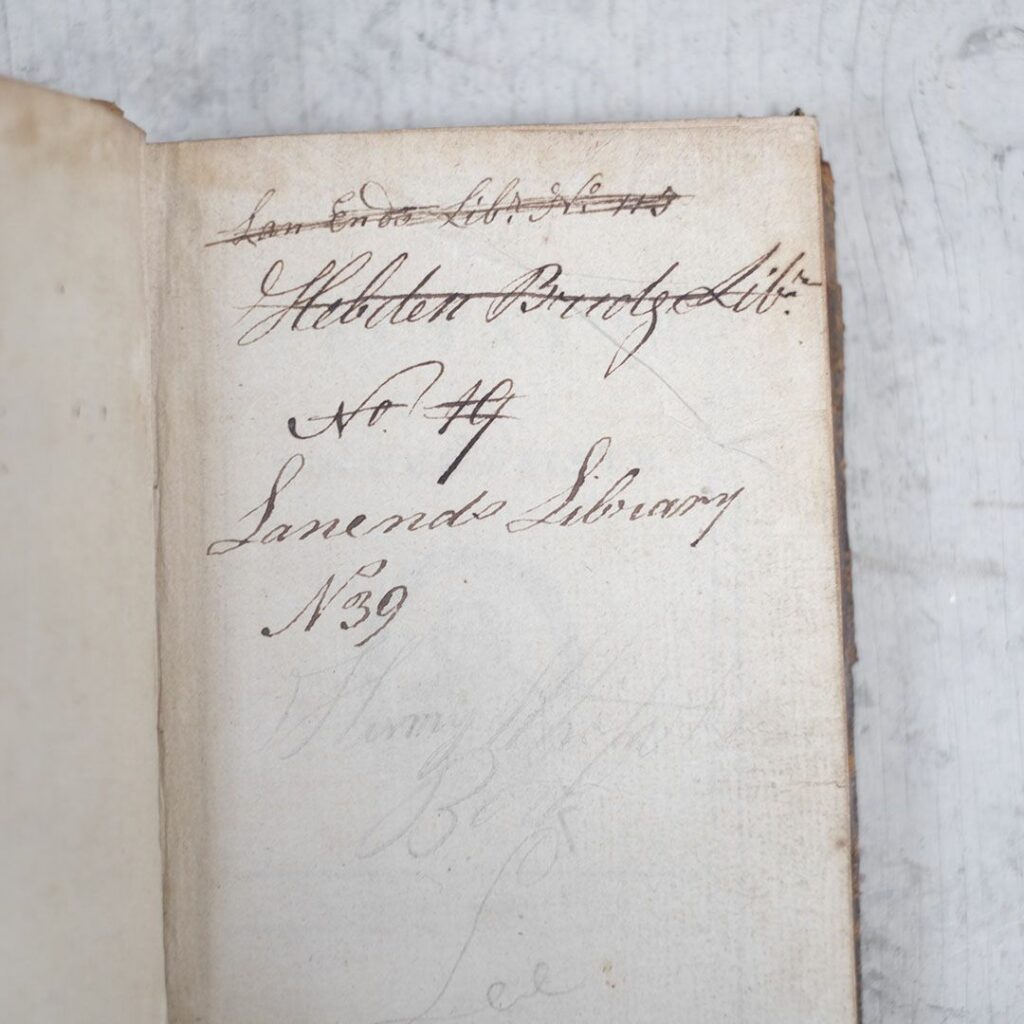 Lan Ends Libr. No. 113
Hebden Bridge Libry.
No. 49
Lanends Library
No 39
Henry
Book